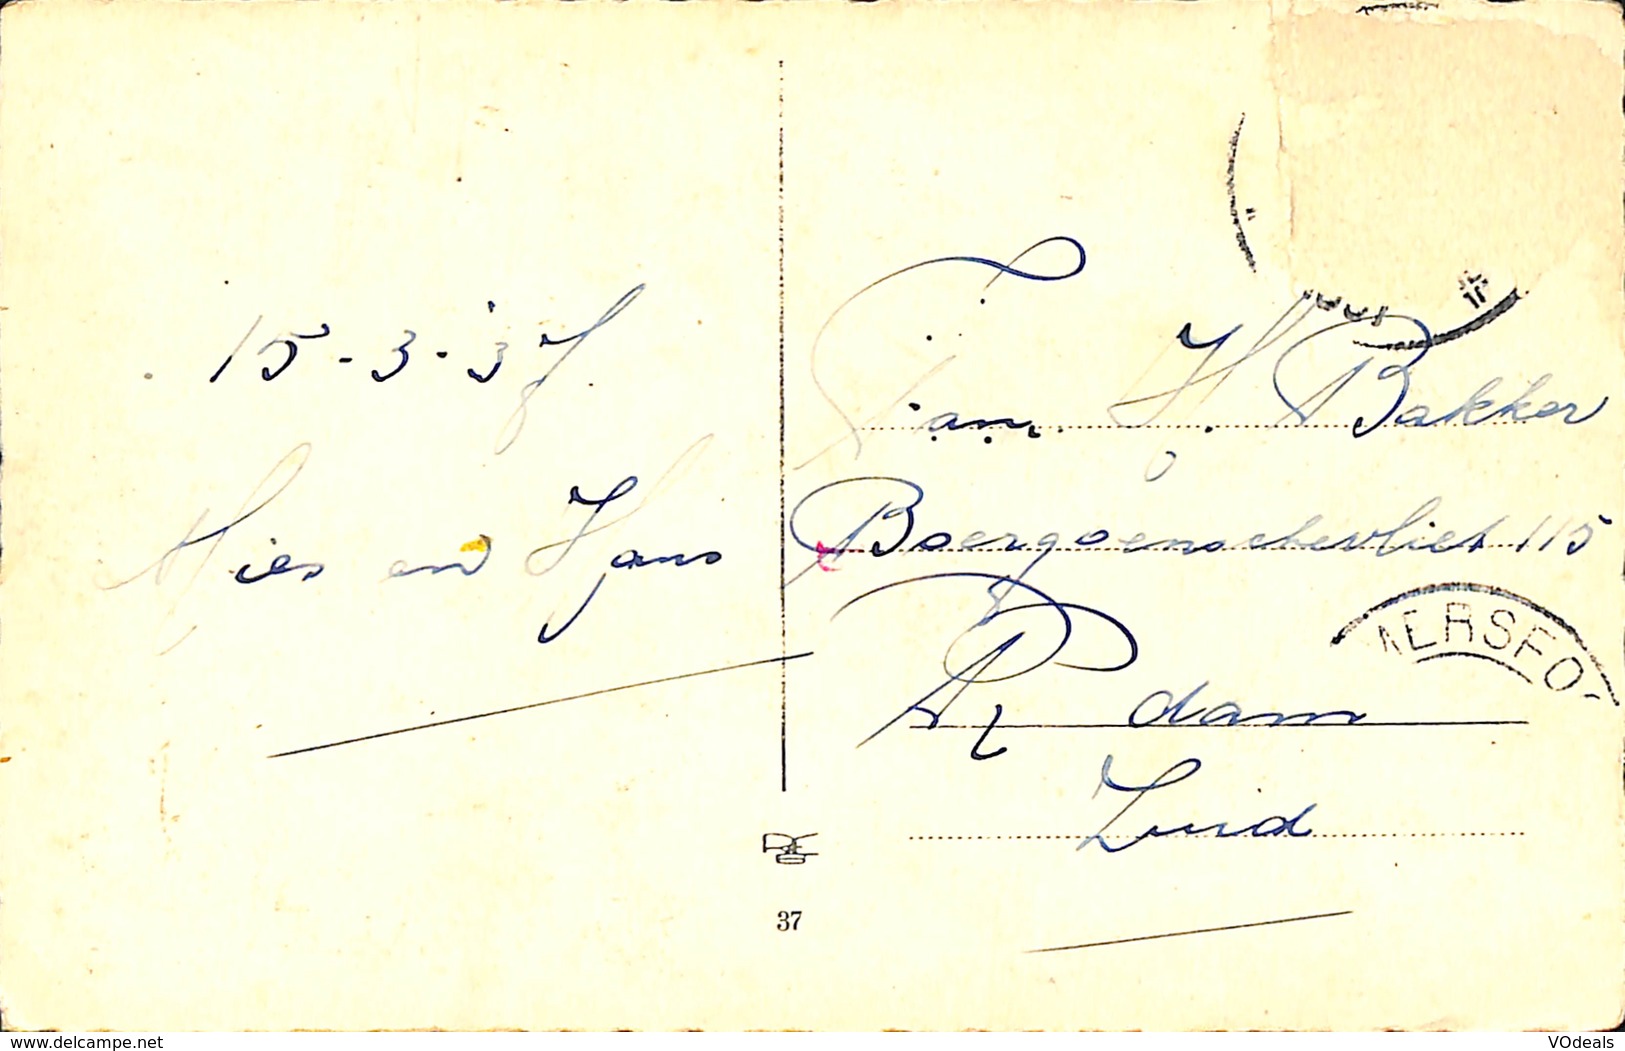 15-3-37
Mies en Hans
Fam. H. Bakker
Boergoenschevliet 115
R dam
Zuid
AERSFO
37
delcampe.net
VOdeals